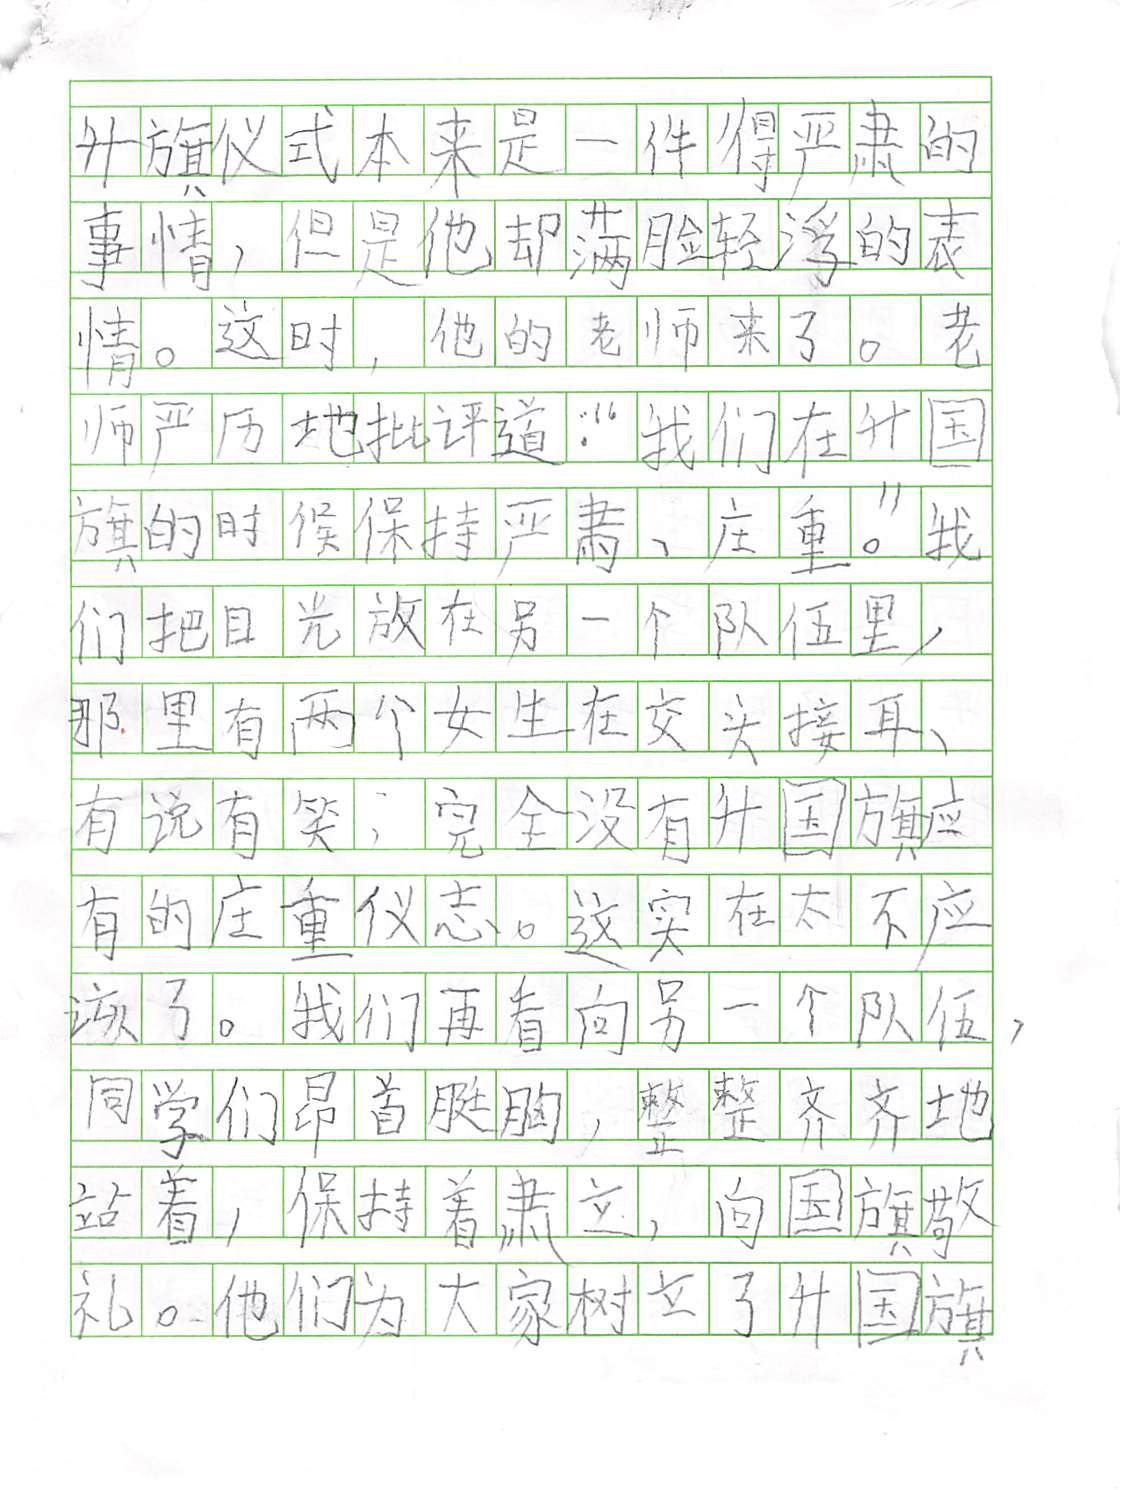 升旗仪式本来是一件得严肃的
事情，但是他却满脸轻浮的表
情。这时，他的老师来了。老
师严历地批评道：“我们在升国
旗的时候保持严肃、庄重。”我
们把目光放在另一个队伍里，
那里有两个女生在交头接耳、
有说有笑；完全没有升国旗应
有的庄重仪志。这实在太不应
该了。我们再看向另一个队伍，
同学们昂首挺胸，整整齐齐地
站着，保持着肃立，向国旗敬
礼。他们为大家树立了升国旗